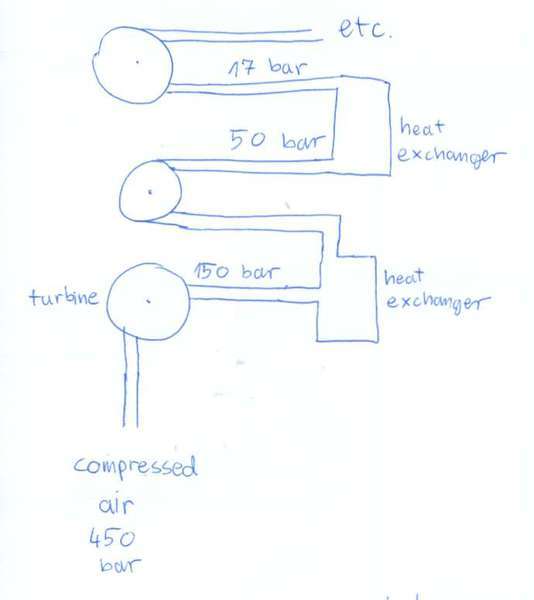 etc.
17 bar
50 bar
heat
exchanger
150 bar
turbine
heat
exchanger
compressed
air
450
bar